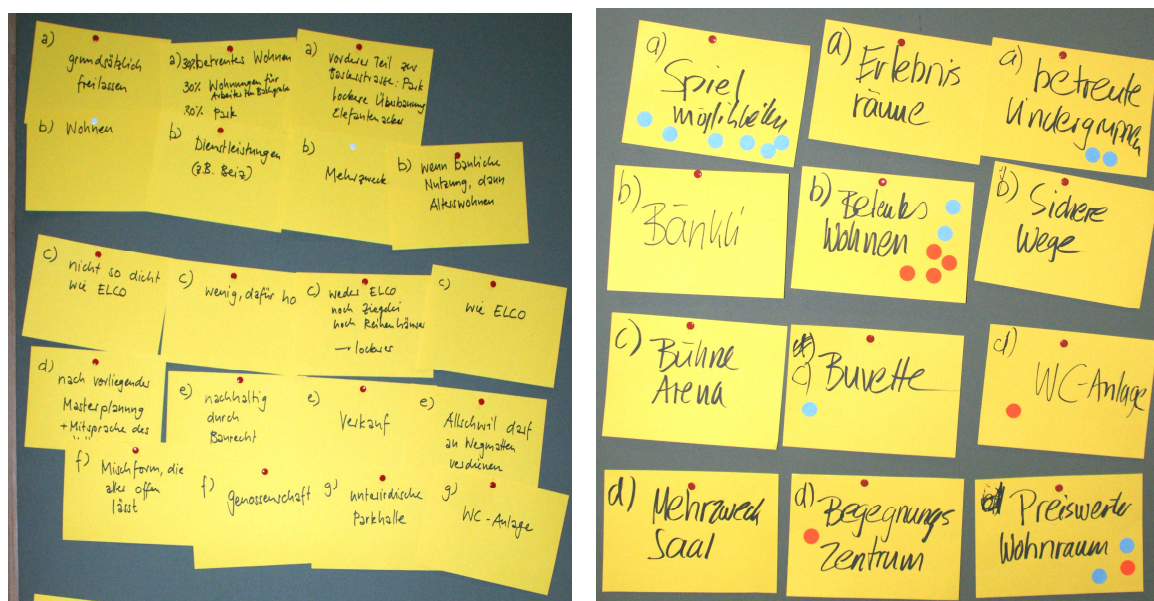 a) grundsätzlich
freilassen
a) 30% betreutes Wohnen
30% Wohnungen für
Arbeiter im
30% Park
a) vorderer Teil zur
Baslerstrasse: Park
lockere Überbauung
Elefantenacker
b) Wohnen
b) Dienstleistungen
(z.B. Beiz)
b)
Mehrzweck
b) wenn bauliche
Nutzung, dann
Alterswohnen
c) nicht so dicht
wie ELCO
c) wenig, dafür ho
c) weder ELCO
noch Ziegelei
noch Reihenhäuser
→ lockerer
c)
wie ELCO
d)
nach vorliegender
Masterplanung
+ Mitsprache des
e) nachhaltig
durch
Baurecht
e)
Verkauf
e)
Allschwil darf
an Wegmatten
verdienen
f) Mischform, die
alles offen
lässt
f) genossenschaft
g) unterirdische
Parkhalle
g)
WC-Anlage
a)
Spiel
möglichkeiten
a) Erlebnis
räume
a) betreute
Kindergruppen
b)
Bänkli
b) Betreutes
Wohnen
b) Sichere
Wege
c) Bühne
Arena
c) Buvette
d)
WC-Anlage
d) Mehrzweck
Saal
d) Begegnungs
Zentrum
Preiswerter
Wohnraum